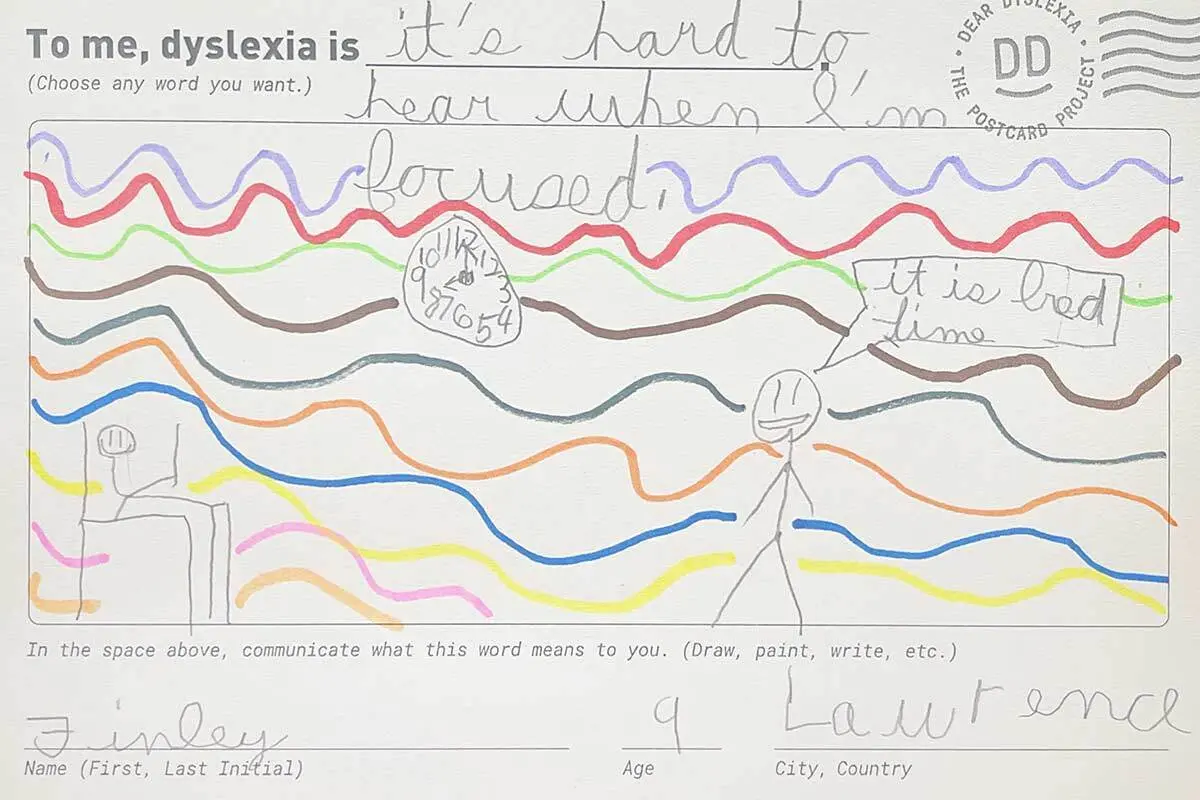 To me, dyslexia is it's hard to
(Choose any word you want.)
hear when I'm
focused.
DEAR DYSLEXIA • THE POSTCARD PROJECT •
DD
10 11 12 1 2 3 4 5 6 7 8 9
it is bed
time
In the space above, communicate what this word means to you. (Draw, paint, write, etc.)
Finley
9
Lawrence
Name (First, Last Initial)
Age
City, Country